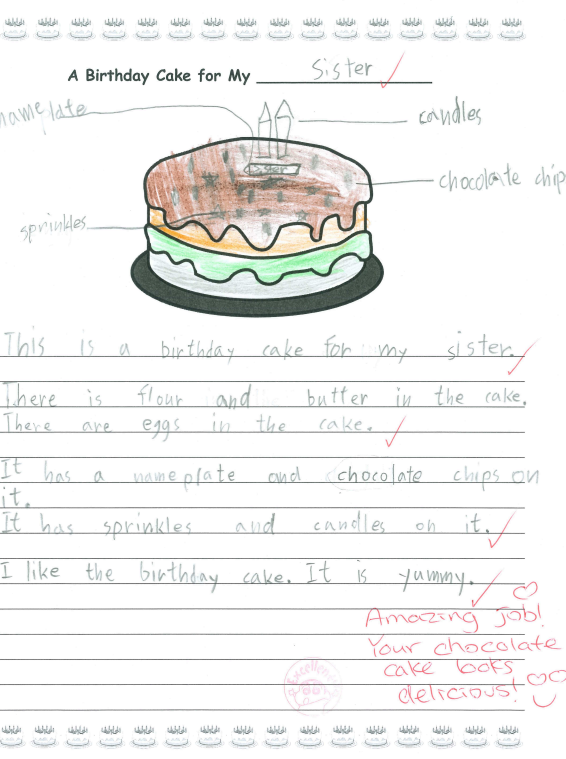 A Birthday Cake for My Sister
nameplate
candles
Sister
chocolate chip
sprinkles
This is a birthday cake for my sister.
There is flour and butter in the cake.
There are eggs in the cake.
It has a nameplate and chocolate chips on
it.
It has sprinkles and candles on it.
I like the birthday cake. It is yummy.
Amazing job!
Your chocolate
cake looks
delicious!
Excellent